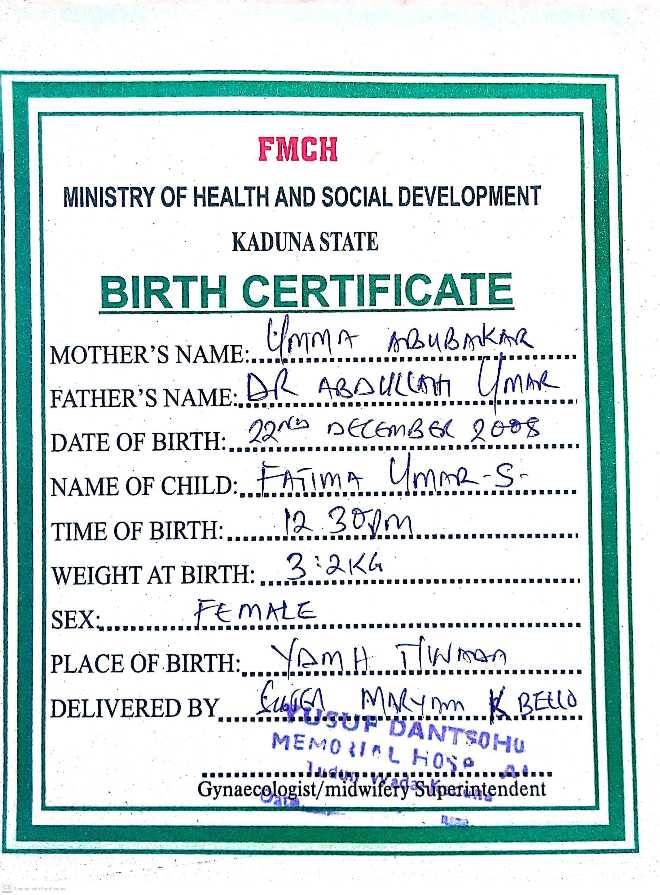 FMCH
MINISTRY OF HEALTH AND SOCIAL DEVELOPMENT
KADUNA STATE
BIRTH CERTIFICATE
MOTHER'S NAME: UMMA ABUBAKAR
FATHER'S NAME: DR ABDULLAHI UMAR
DATE OF BIRTH: 22ND DECEMBER 2008
NAME OF CHILD: FATIMA UMAR-S-
TIME OF BIRTH: 12.30pm
WEIGHT AT BIRTH: 3:2KG
SEX: FEMALE
PLACE OF BIRTH: YDMH T/WADA
DELIVERED BY MARYAM K BELLO
YUSUF DANTSOHO
MEMORIAL HOSP
Tudun Wada
Gynaecologist/midwifery Superintendent
Date